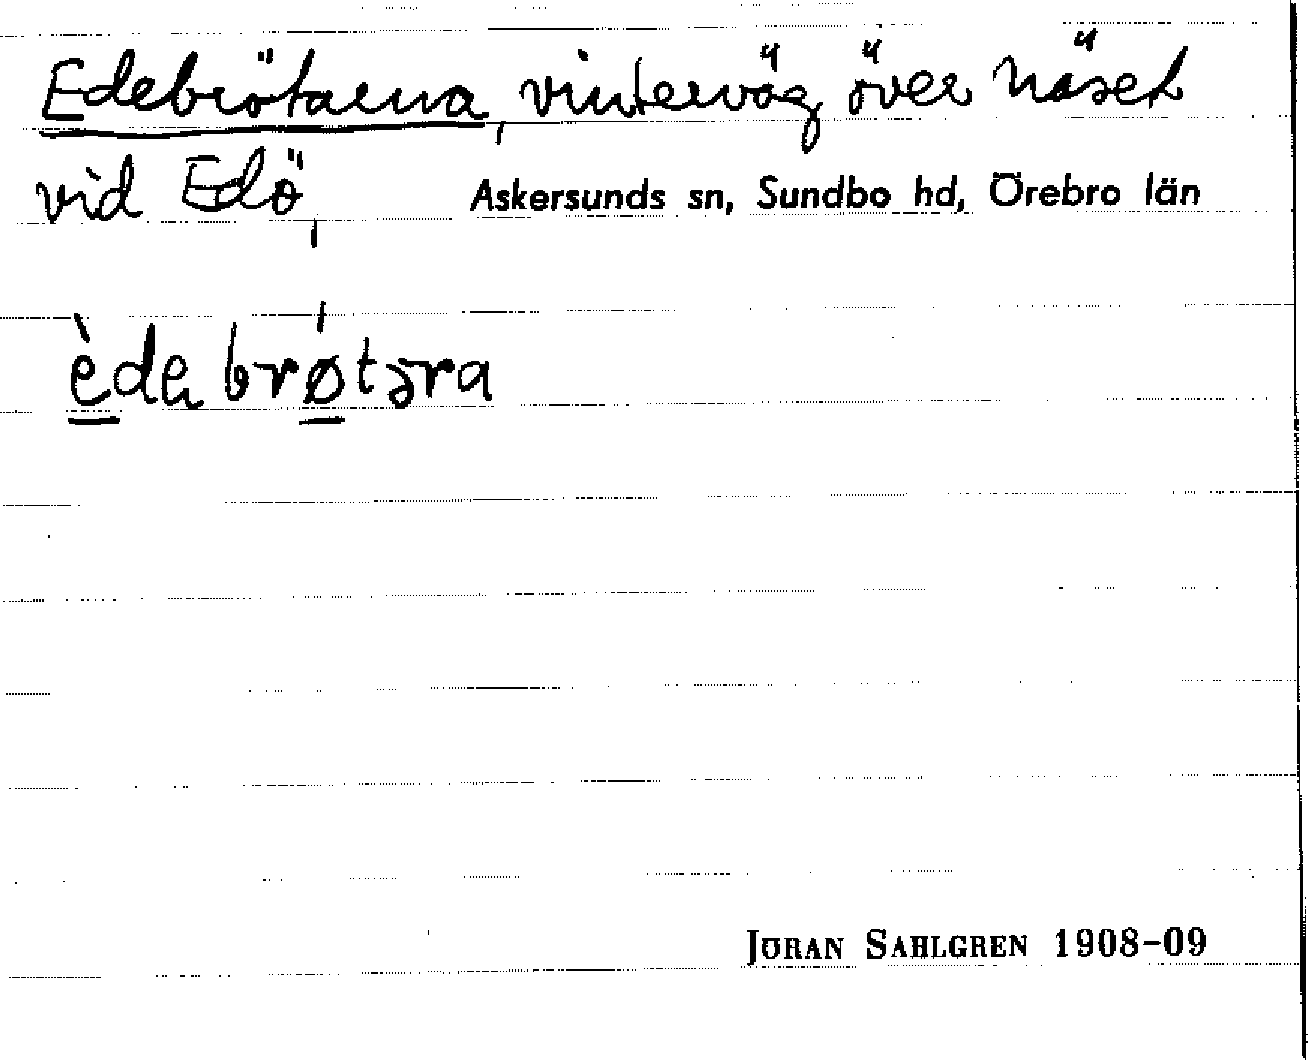 Edebrötarna, vinterväg över näset
vid Edö, Askersunds sn, Sundbo hd, Örebro län
èdebrǿtəra
JÖRAN SAHLGREN 1908-09